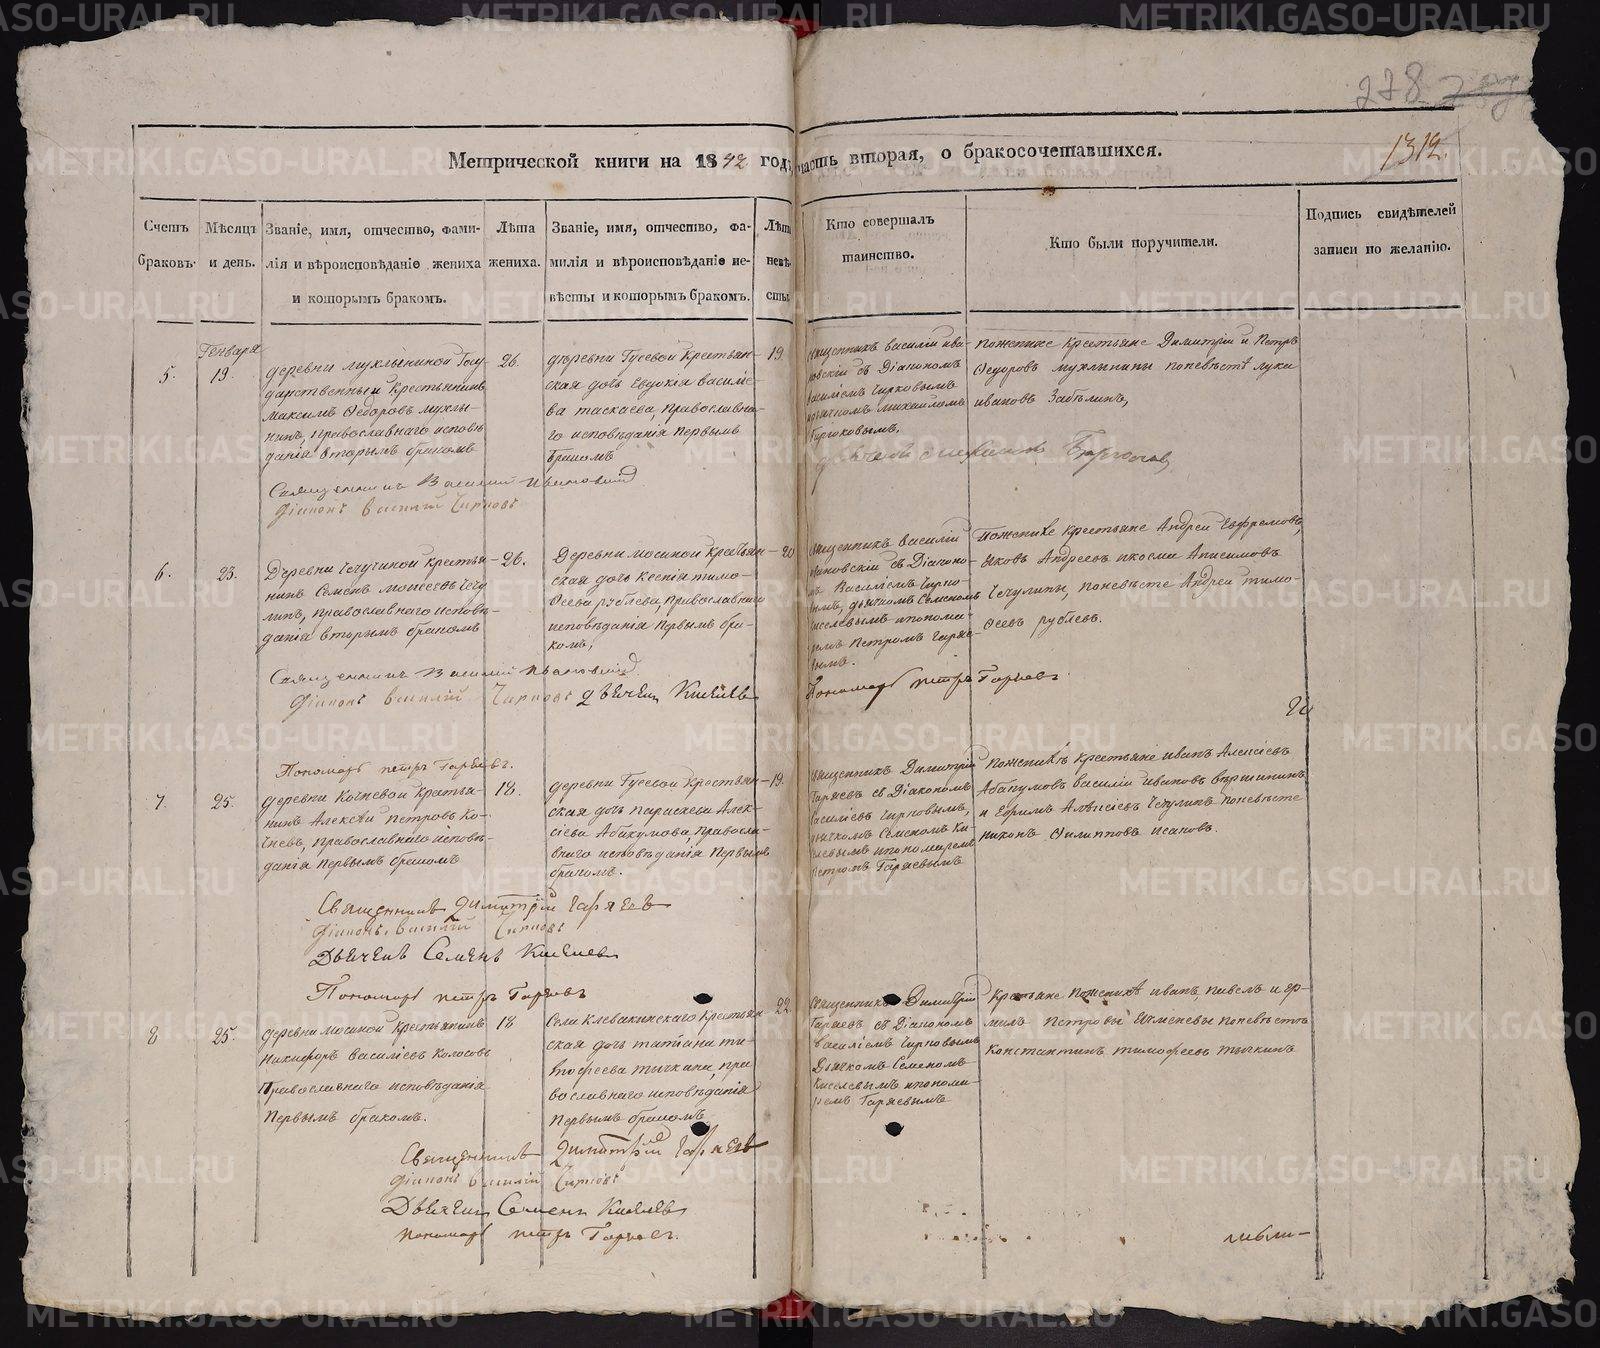 278
1312.
Метрической книги на 1842 годъ часть вторая, о бракосочетавшихся.
Счетъ браковъ.
Мѣсяцъ и день.
Званіе, имя, отчество, фамилія и вѣроисповѣданіе жениха и которымъ бракомъ.
Лѣта жениха.
Званіе, имя, отчество, фамилія и вѣроисповѣданіе невѣсты и которымъ бракомъ.
Лѣта невѣсты
Кто совершалъ таинство.
Кто были поручители.
Подпись свидѣтелей записи по желанію.
5.
Генваря
19.
деревни Мухлыниной Госу-
дарственный Крестьянинъ
Максимъ Ѳедоровъ Мухлы-
нинъ, православнаго исповѣ
данія вторымъ бракомъ
26.
деревни Гусевой крестьян-
ская дочь Евдокія Василіе-
ва Таскаева, православна-
го исповѣданія первымъ
бракомъ
19
Священникъ Василій Ива-
новскій съ Діакономъ
Василіемъ Чирковымъ
дьячкомъ Михаиломъ
Бирюковымъ,
по женихе крестьяне Димитрій и Петръ
Ѳедоровъ Мухлынины по невѣстѣ Лука
Ивановъ Забѣлинъ,
Священникъ Василий Ивановскій
Діаконъ Василій Чирковъ
6.
23.
Деревни Чечулиной крестья-
нинъ Семенъ Моисеевъ Чечу
линъ, православнаго исповѣ-
данія вторымъ бракомъ
26.
Деревни Мосиной крестьян-
ская дочь Ксенія Тимо-
ѳеева Рублева, православнаго
исповѣданія первымъ бра-
комъ,
20
Священникъ Василій
Ивановскій съ Діаконо-
мъ Василіемъ Чирко-
вымъ, дьячкомъ Семеномъ
Киселевымъ и понома-
ремъ Петромъ Гаряе-
вымъ.
По женихе крестьяне Андрей Ефремовъ,
Яковъ Андреевъ и Косма Анисимовъ
Чечулины, по невѣсте Андрей Тимо-
ѳеевъ Рублевъ.
Священникъ Василий Ивановскій
Діаконъ Василій Чирковъ Дьячекъ Киселевъ
Пономарь Петръ Гаряевъ
Пономарь Петръ Гаряевъ.
7.
25.
деревни Кочневой крестья-
нинъ Алексѣй Петровъ Ко-
чневъ, православнаго исповѣ-
данія первымъ бракомъ
18.
деревни Гусевой крестьян-
ская дочь Параскева Алек-
сіева Абакумова, правосла-
внаго исповѣданія первымъ
бракомъ.
19.
Священникъ Димитрій
Гаряевъ съ Діакономъ
Василіемъ Чирковымъ,
дьячкомъ Семеномъ Ки-
селевымъ и пономаремъ
Петромъ Гаряевымъ
по женихѣ крестьяне Иванъ Алексіевъ
Абакумовъ Василій Ивановъ Вершининъ
и Ефимъ Алексіевъ Чечулинъ по невѣсте
Никонъ Филипповъ Исаковъ.
Священникъ Димитрій Гаряевъ
Діаконъ Василій Чирковъ
Дьячекъ Семенъ Киселевъ
Пономарь Петръ Гаряевъ
8
25.
деревни Мосиной крестьянинъ
Никифоръ Василіевъ Колосовъ
Православнаго исповѣданія
первымъ бракомъ.
18
Села Клевакинскаго крестьян-
ская дочь Татіана Ти-
мофеева Тычкина, пра-
вославнаго исповѣданія
первымъ бракомъ
22
Священникъ Димитрій
Гаряевъ съ Діакономъ
Василіемъ Чирковымъ
Дьячкомъ Семеномъ
Киселевымъ и понома-
ремъ Гаряевымъ
Крестьяне по женихѣ Иванъ, Павелъ и Ер-
милъ Петровы по невѣстѣ
Константинъ Тимофеевъ Тычкинъ
Священникъ Димитрій Гаряевъ
Діаконъ Василій Чирковъ
Дьячекъ Семенъ Киселевъ
Пономарь Петръ Гаряевъ.
METRIKI.GASO-URAL.RU